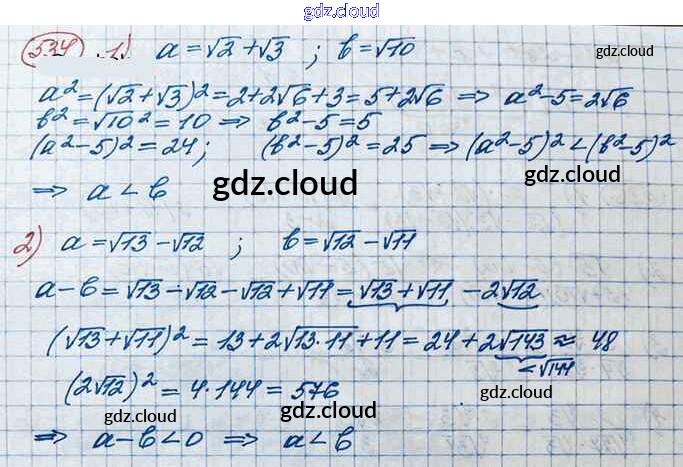 gdz.cloud
534 1) a = √2 + √3 ; b = √10 gdz.cloud
a² = (√2 + √3)² = 2 + 2√6 + 3 = 5 + 2√6 ⇒ a² - 5 = 2√6
b² = √10² = 10 ⇒ b² - 5 = 5
(a² - 5)² = 24; (b² - 5)² = 25 ⇒ (a² - 5)² < (b² - 5)²
⇒ a < b gdz.cloud gdz.cloud
2) a = √13 - √12 ; b = √12 - √11
a - b = √13 - √12 - √12 + √11 = √13 + √11 - 2√12
(√13 + √11)² = 13 + 2√13·11 + 11 = 24 + 2√143 ≈ 48
< √144
(2√12)² = 4·144 = 576 gdz.cloud
gdz.cloud gdz.cloud
⇒ a - b < 0 ⇒ a < b gdz.cloud